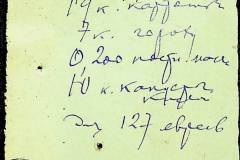 19 к. картошк
7 к. гороху
0,200 пост. мас
10 к. капусты
для 127 евреев